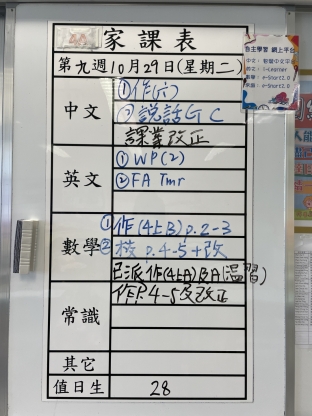 家課表
自主學習 網上平台
第九週10月29日(星期二)
中文
①作(六)
②説話G C
課業改正
英文
①WP(2)
②FA Tmr
數學
①作(4上B)p.2-3
②核 p.4-5+改
已派作(4上A)及A(温習)
常識
作P.4-5及改正
其它
值日生
28